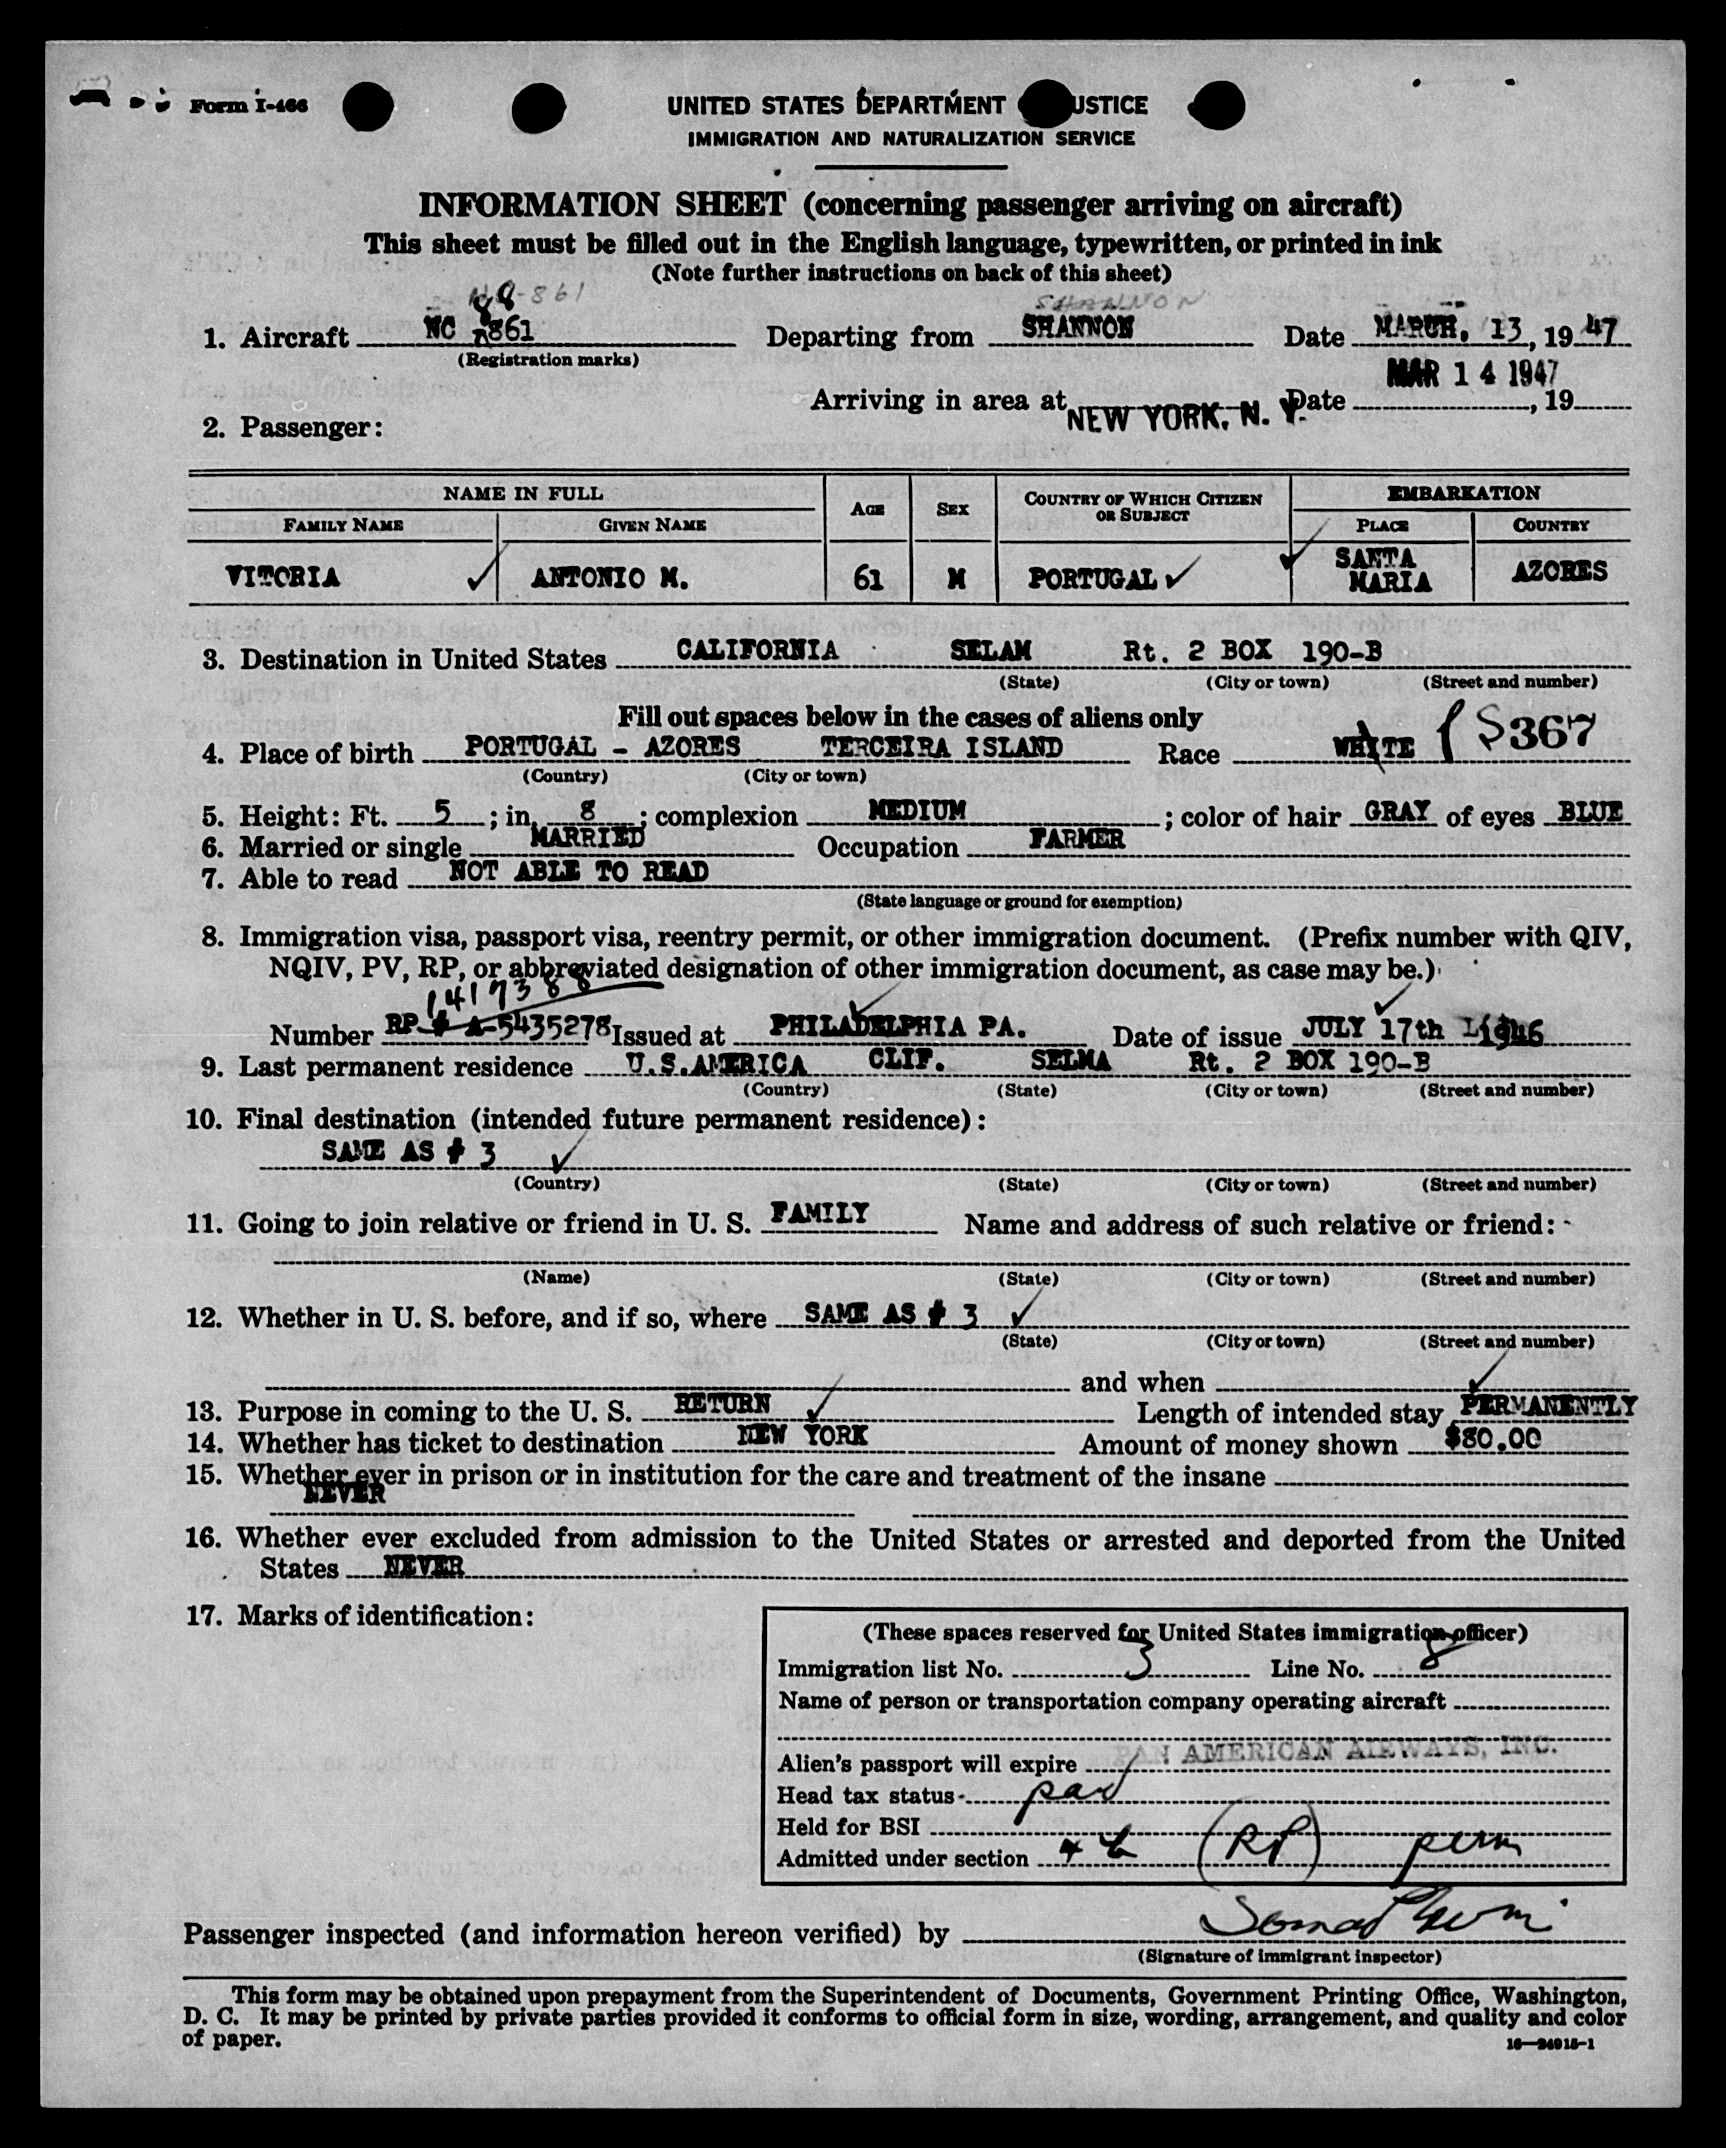 Form I-466
UNITED STATES DEPARTMENT USTICE
IMMIGRATION AND NATURALIZATION SERVICE
INFORMATION SHEET (concerning passenger arriving on aircraft)
This sheet must be filled out in the English language, typewritten, or printed in ink
(Note further instructions on back of this sheet)
-861 SHANNON
88
1. Aircraft NC 861 Departing from SHANNON Date MARCH, 13, 19 47
(Registration marks)
MAR 14 1947
Arriving in area at NEW YORK, N. Y. Date , 19
2. Passenger:
NAME IN FULL AGE SEX COUNTRY OF WHICH CITIZEN OR SUBJECT EMBARKATION
FAMILY NAME GIVEN NAME PLACE COUNTRY
VITORIA ANTONIO M. 61 M PORTUGAL SANTA MARIA AZORES
3. Destination in United States CALIFORNIA SELAM Rt. 2 BOX 190-B
(State) (City or town) (Street and number)
Fill out spaces below in the cases of aliens only
4. Place of birth PORTUGAL - AZORES TERCEIRA ISLAND Race WHITE S367
(Country) (City or town)
5. Height: Ft. 5 ; in. 8 ; complexion MEDIUM ; color of hair GRAY of eyes BLUE
6. Married or single MARRIED Occupation FARMER
7. Able to read NOT ABLE TO READ
(State language or ground for exemption)
8. Immigration visa, passport visa, reentry permit, or other immigration document. (Prefix number with QIV,
NQIV, PV, RP, or abbreviated designation of other immigration document, as case may be.)
1417388
Number RP # A-5435278 Issued at PHILADELPHIA PA. Date of issue JULY 17th 1946
9. Last permanent residence U.S.AMERICA CLIF. SELMA Rt. 2 BOX 190-B
(Country) (State) (City or town) (Street and number)
10. Final destination (intended future permanent residence):
SAME AS # 3
(Country) (State) (City or town) (Street and number)
11. Going to join relative or friend in U. S. FAMILY Name and address of such relative or friend:
(Name) (State) (City or town) (Street and number)
12. Whether in U. S. before, and if so, where SAME AS # 3
(State) (City or town) (Street and number)
and when
13. Purpose in coming to the U. S. RETURN Length of intended stay PERMANENTLY
14. Whether has ticket to destination NEW YORK Amount of money shown $80.00
15. Whether ever in prison or in institution for the care and treatment of the insane
NEVER
16. Whether ever excluded from admission to the United States or arrested and deported from the United
States NEVER
17. Marks of identification:
(These spaces reserved for United States immigration officer)
Immigration list No. 3 Line No. 8
Name of person or transportation company operating aircraft
PAN AMERICAN AIRWAYS, INC.
Alien's passport will expire
Head tax status pad
Held for BSI
Admitted under section 4 b (RP) perm
Passenger inspected (and information hereon verified) by
(Signature of immigrant inspector)
This form may be obtained upon prepayment from the Superintendent of Documents, Government Printing Office, Washington,
D. C. It may be printed by private parties provided it conforms to official form in size, wording, arrangement, and quality and color
of paper.
16—24915-1